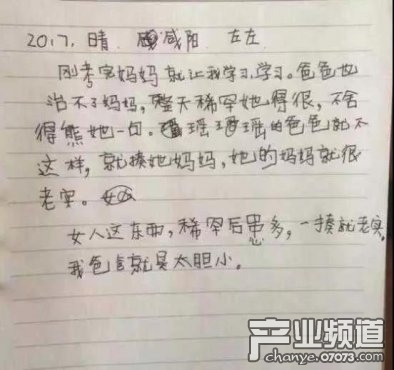 2017. 晴 咸阳 左左
刚考完妈妈就让我学习.学习。爸爸也
治不了妈妈,整天稀罕她得很,不舍
得熊她一句。瑶瑶的爸爸就不
这样,就揍她妈妈,她的妈妈就很
老实。
女人这东西,稀罕后患多,一揍就老实。
我爸爸就是太胆小。
产业频道
chanye.07073.com